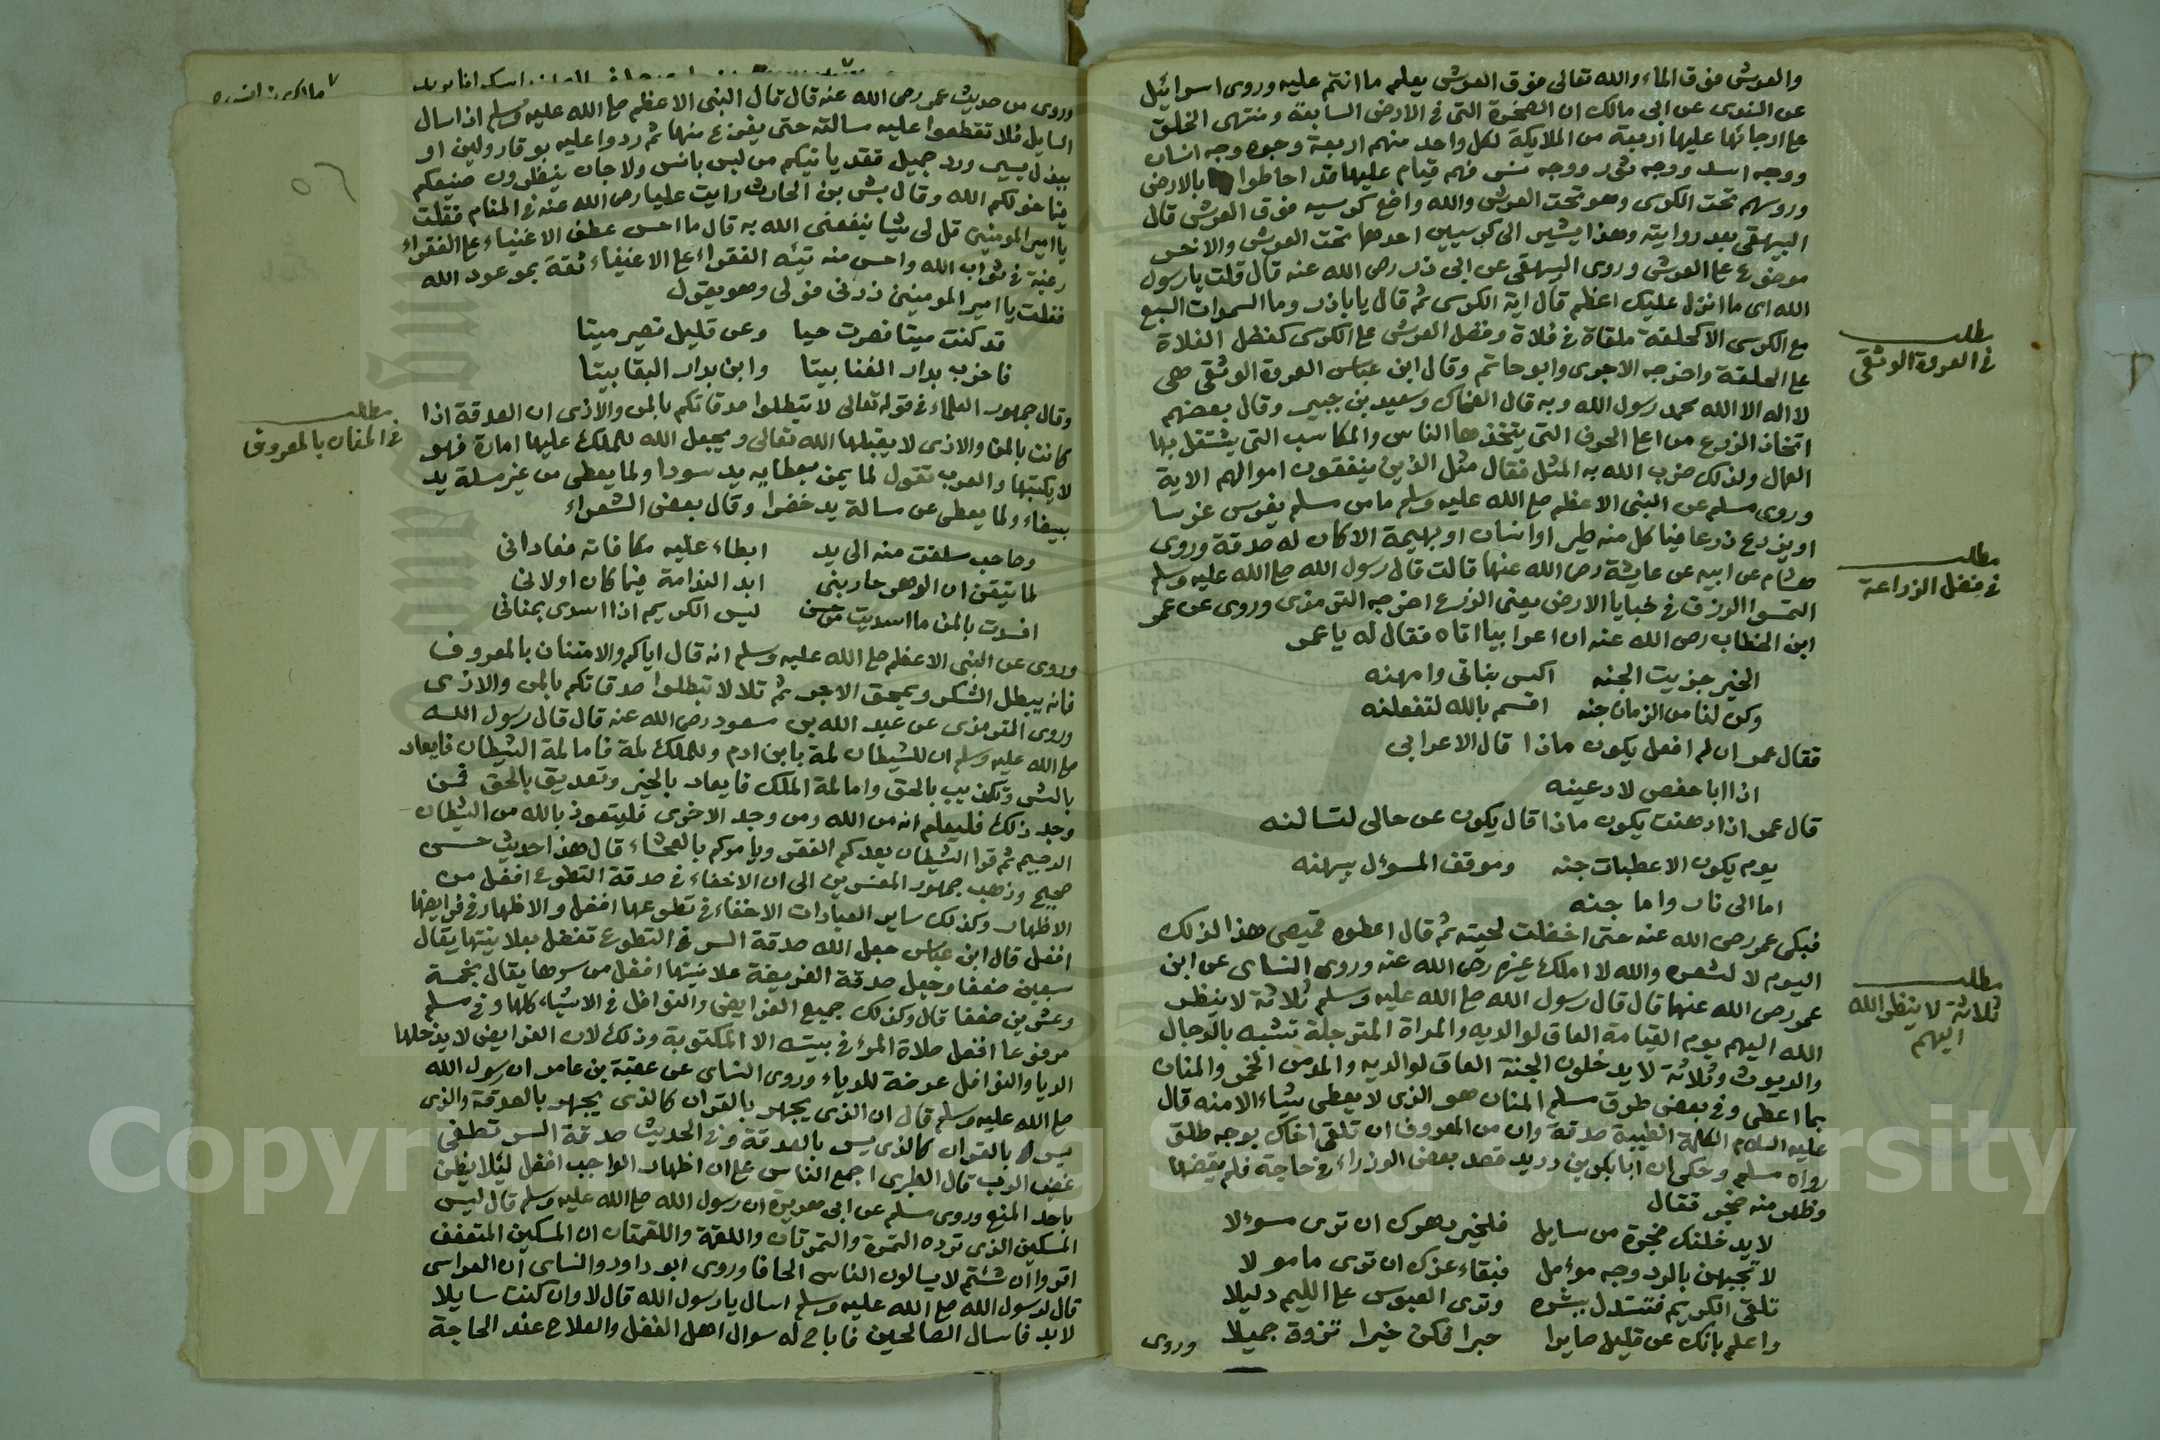 والعرش فوق الماء والله تعالى فوق العرش يعلم ما انتم عليه وروى اسرائيل
عن السدى عن ابى مالك ان الصخرة التى فى الارض السابعة ومنتهى الخلق
على ارجائها عليها اربعة من الملايكة لكل واحد منهم اربعة وجوه وجه انسان
ووجه اسد ووجه ثور ووجه نسر فهم قيام عليها قد احاطوا بالارض
وروسهم تحت الكرسى وهو تحت العرش والله واضع كرسيه فوق العرش قال
البيهقى بعد روايته وهذا يشير الى كرسيين احدهما تحت العرش والاخر
موضوع على العرش وروى البيهقى عن ابى ذر رضى الله عنه قال قلت يا رسول
الله اى ما انزل عليك اعظم قال اية الكرسى ثم قال يا باذر وما السموات السبع
مع الكرسى الا كحلقة ملقاة فى فلاة وفضل العرش على الكرسى كفضل الفلاة
على الحلقة واخرجه الاجرى وابو حاتم وقال ابن عباس العروة الوثقى هى
لا اله الا الله محمد رسول الله وبه قال الضحاك وسعيد بن جبير وقال بعضهم
اتخاذ الزرع من اعلى الحرف التى يتخذها الناس والمكاسب التى يشتغل بها
العمال ولذلك ضرب الله به المثل فقال مثل الذين ينفقون اموالهم الاية
وروى مسلم عن النبى الاعظم صلى الله عليه وسلم ما من مسلم يغرس غرسا
او يزرع زرعا فياكل منه طير او انسان او بهيمة الا كان له صدقة وروى
هشام عن ابيه عن عايشة رضى الله عنها قالت قال رسول الله صلى الله عليه وسلم
التمسوا الرزق فى خبايا الارض يعنى الزرع اخرجه الترمذى وروى عن عمر
ابن الخطاب رضى الله عنه ان اعرابيا اتاه فقال له يا عمر
الخير جزيت الجنه اكس بناتى وامهنه
وكن لنا من الزمان جنه اقسم بالله لتفعلنه
فقال عمر ان لم افعل يكون ماذا قال الاعرابى
اذا ابا حفص لادعينه
قال عمر اذا دهنت يكون ماذا قال يكون عن حالى لتسالنه
يوم يكون الاعطيات جنه وموقف المسؤل بينهنه
اما الى نار واما جنه
فبكى عمر رضى الله عنه حتى اخضلت لحيته ثم قال اعطوه قميصى هذا لذلك
اليوم لا لشعره والله لا املك غيره رضى الله عنه وروى النساى عن ابن
عمر رضى الله عنهما قال قال رسول الله صلى الله عليه وسلم ثلاثة لا ينظر
الله اليهم يوم القيامة العاق لوالديه والمراة المترجلة تتشبه بالرجال
والديوث وثلاثة لا يدخلون الجنة العاق لوالديه والمدمن الخمر والمنان
بما اعطى وفى بعض طرق مسلم المنان هو الذى لا يعطى شياء الا منه قال
عليه السلام الكلمة الطيبة صدقة وان من المعروف ان تلقى اخاك بوجه طلق
رواه مسلم وحكى ان ابا بكر بن دريد قصد بعض الوزراء فى حاجة فلم يقضها
وظهر منه ضجر فقال
لا يدخلنك ضجرة من سايل فلخير دهرك ان ترى مسؤلا
لا تجبهن بالرد وجه مؤمل فبقاء عزك ان ترى مامولا
تلقى الكريم فتستدل ببشره وترى العبوس على اللئيم دليلا
واعلم بانك عن قليل صايرا خبرا فكن خيرا تروق جميلا
وروى
مطلب
فى العروة الوثقى
مطلب
فى فضل الزراعة
مطلب
ثلاثة لا ينظر الله
اليهم
وروى من حديث عمر رضى الله عنه قال قال النبى الاعظم صلى الله عليه وسلم اذا سال
السايل فلا تقطعوا عليه مسالته حتى يفرغ منها ثم ردوا عليه بوقار ولين او
ببذل يسير ورد جميل فقد ياتيكم من ليس بانس ولا جان ينظرون صنيعكم
فيما خولكم الله وقال بشر بن الحارث رايت عليا رضى الله عنه فى المنام فقلت
يا امير المومنين قل لى شيا ينفعنى الله به قال ما احسن عطف الاغنياء على الفقراء
رغبة فى ثواب الله واحسن منه تيه الفقراء على الاغنياء ثقة بموعود الله
فقلت يا امير المومنين زدنى فولى وهو يقول
قد كنت ميتا فصرت حيا وعن قليل تصير ميتا
فاخرب بدار الفنا بيتا وابن بدار البقا بيتا
وقال جمهور العلماء فى قوله تعالى لا تبطلوا صدقاتكم بالمن والاذى ان الصدقة اذا
كانت بالمن والاذى لا يقبلها الله تعالى ويجعل الله للملك عليها امارة فهو
لا يكتبها والعرب تقول لما يمن بعطايه يد سودا ولما يعطى من غير مسلة يد
بيضاء ولما يعطى عن مسالة يد خضرا وقال بعض الشعراء
وصاحب سلفت منه الى يد ابطاء عليه مكافاته فعادانى
لما تيقن ان الدهر حاربنى ابد الندامة فيما كان اولانى
افسدت بالمن ما اسديت من حسن ليس الكريم اذا اسدى بمنانى
وروى عن النبى الاعظم صلى الله عليه وسلم انه قال اياكم والامتنان بالمعروف
فانه يبطل الشكر ويمحق الاجر ثم تلا لا تبطلوا صدقاتكم بالمن والاذى
وروى الترمذى عن عبد الله بن مسعود رضى الله عنه قال قال رسول الله
صلى الله عليه وسلم ان للشيطان لمة بابن ادم وللملك لمة فاما لمة الشيطان فايعاد
بالشر وتكذيب بالحق واما لمة الملك فايعاد بالخير وتصديق بالحق فمن
وجد ذلك فليعلم انه من الله ومن وجد الاخرى فليتعوذ بالله من الشيطان
الرجيم ثم قرا الشيطان يعدكم الفقر ويامركم بالفحشاء قال هذا حديث حسن
صحيح وذهب جمهور المفسرين الى ان الاخفاء فى صدقة التطوع افضل من
الاظهار وكذلك ساير العبادات الاخفاء فى تطوعها افضل والاظهار فى فرايضها
افضل قال ابن عباس جعل الله صدقة السر فى التطوع تفضل بعلانيتها يقال
سبعين ضعفا وجعل صدقة الفريضة علانيتها افضل من سرها يقال بخمسة
وعشرين ضعفا قال وكذلك جميع الفرايض والنوافل فى الاشياء كلها وفى مسلم
مرفوعا افضل صلاة المرء فى بيته الا المكتوبة وذلك لان الفرايض لا يدخلها
الريا والنوافل عرضة للرياء وروى النساى عن عقبة بن عامر ان رسول الله
صلى الله عليه وسلم قال ان الذى يجهر بالقران كالذى يجهر بالصدقة والذى
يسر بالقران كالذى يسر بالصدقة وفى الحديث صدقة السر تطفى
غضب الرب قال الطبرى اجمع الناس على ان اظهار الواجب افضل ليلا يظن
باحد المنع وروى مسلم عن ابى هريرة ان رسول الله صلى الله عليه وسلم قال ليس
المسكين الذى ترده التمرة والتمرتان واللقمة واللقمتان ان المسكين المتعفف
اقروا ان شئتم لا يسالون الناس الحافا وروى ابو داود والنساى ان الفراسى
قال لرسول الله صلى الله عليه وسلم اسال يا رسول الله قال لا وان كنت سايلا
لا بد فاسال الصالحين فاباح له سوال اهل الفضل والصلاح عند الحاجة
مطلب
فى المنان بالمعروف
Copyright © King Saud University